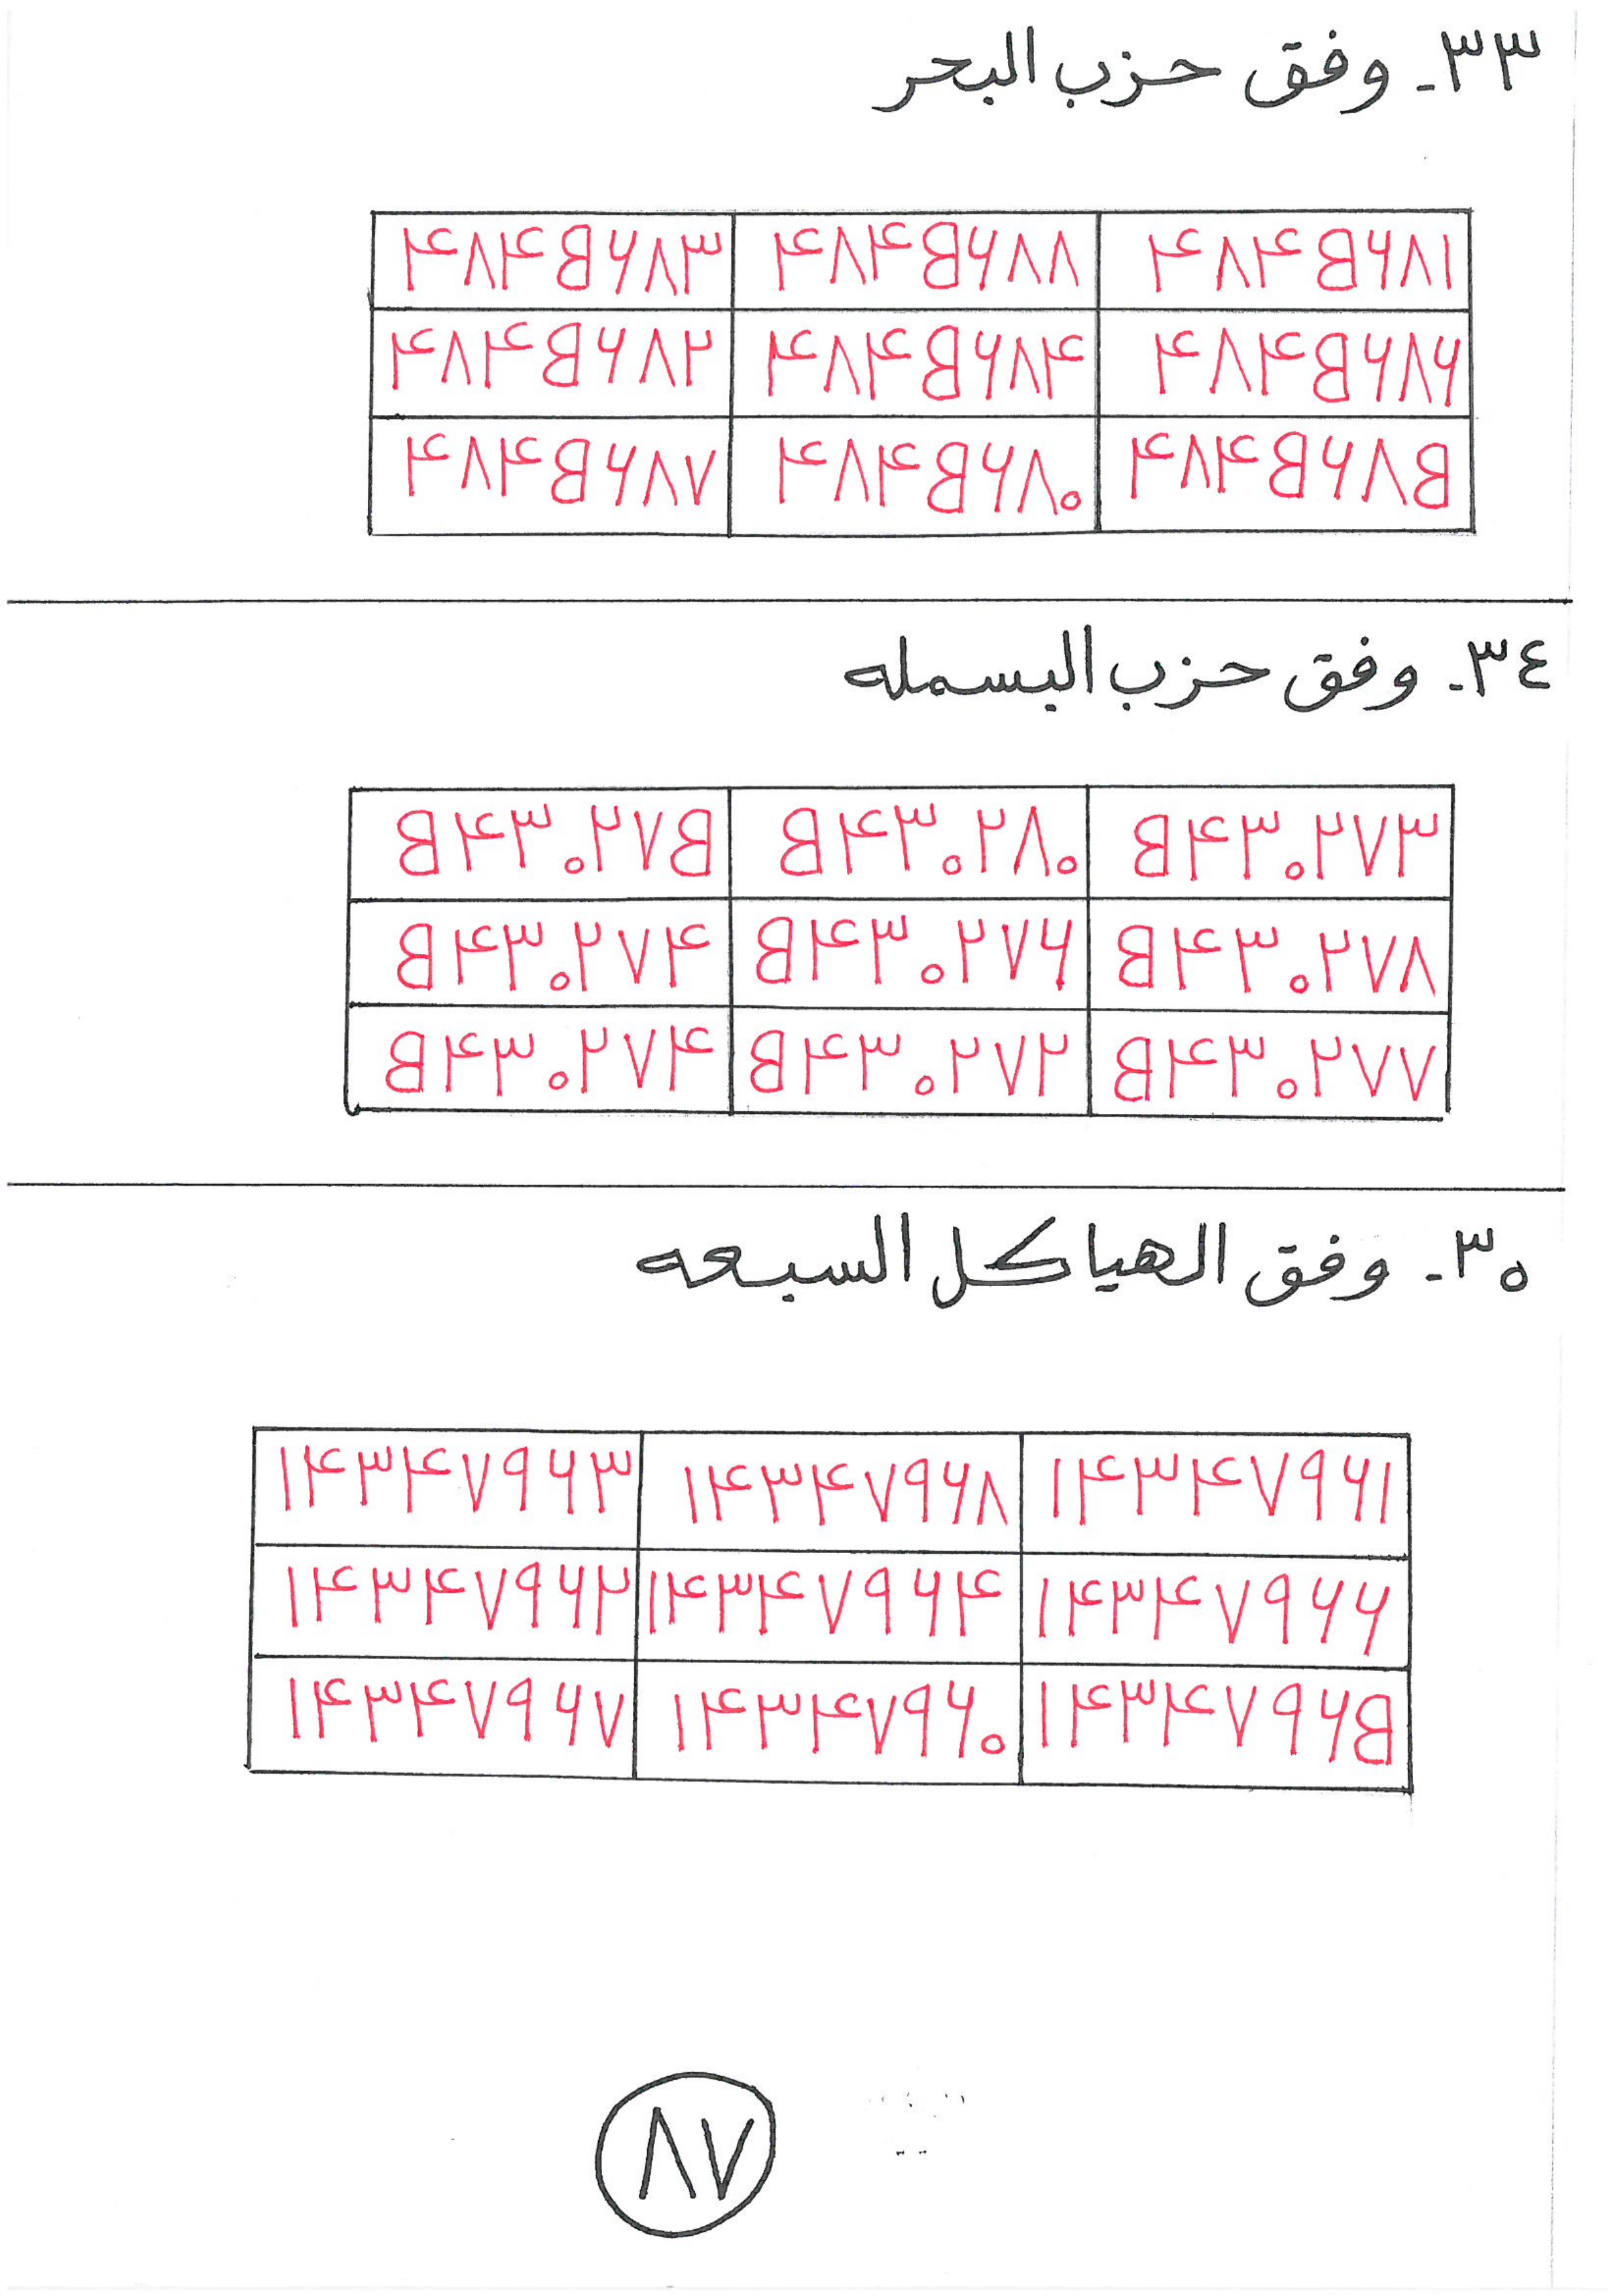 ٣٣- وفق حزب البحر
۴۸۴B۶۸۱ ۴۸۴B۶۸۸ ۴۸۴B۶۸۳
۴۸۴B۶۸۶ ۴۸۴B۶۸۴ ۴۸۴B۶۸۲
۴۸۴B۶۸B ۴۸۴B۶۸۰ ۴۸۴B۶۸۷
٣٤- وفق حزب البسمله
B۴۳۰۲۷۳ B۴۳۰۲۸۰ B۴۳۰۲۷B
B۴۳۰۲۷۸ B۴۳۰۲۷۶ B۴۳۰۲۷۴
B۴۳۰۲۷۷ B۴۳۰۲۷۲ B۴۳۰۲۷۴
٣٥- وفق الهياكل السبعه
۱۴۳۴۷۹۶۱ ۱۴۳۴۷۹۶۸ ۱۴۳۴۷۹۶۳
۱۴۳۴۷۹۶۶ ۱۴۳۴۷۹۶۴ ۱۴۳۴۷۹۶۲
۱۴۳۴۷۹۶B ۱۴۳۴۷۹۶۰ ۱۴۳۴۷۹۶۷
٨٧